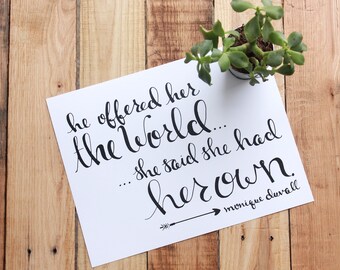 he offered her
the World...
...she said she had
her own.
monique duvall